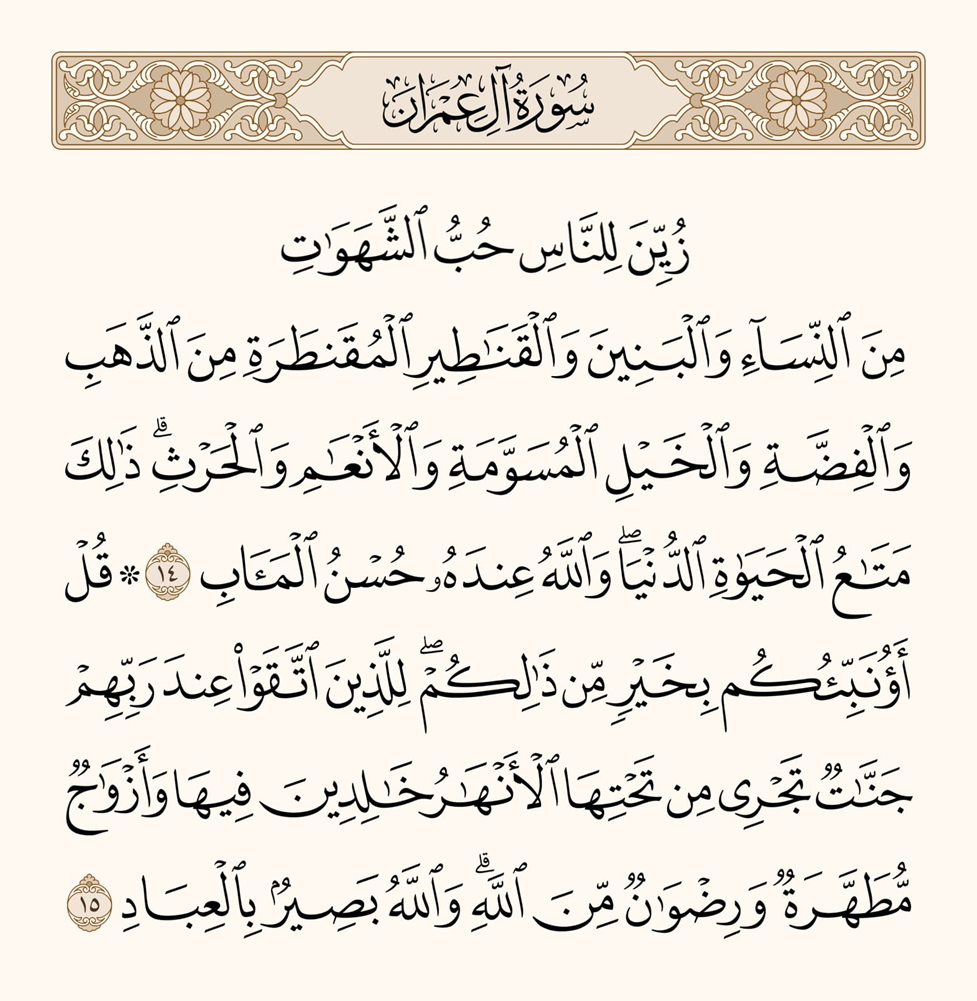 سُورَةُ آلِ عِمْرَانَ
زُيِّنَ لِلنَّاسِ حُبُّ ٱلشَّهَوَٰتِ
مِنَ ٱلنِّسَآءِ وَٱلْبَنِينَ وَٱلْقَنَٰطِيرِ ٱلْمُقَنطَرَةِ مِنَ ٱلذَّهَبِ
وَٱلْفِضَّةِ وَٱلْخَيْلِ ٱلْمُسَوَّمَةِ وَٱلْأَنْعَٰمِ وَٱلْحَرْثِۗ ذَٰلِكَ
مَتَٰعُ ٱلْحَيَوٰةِ ٱلدُّنْيَاۖ وَٱللَّهُ عِندَهُۥ حُسْنُ ٱلْمَـَٔابِ ١٤ ۞ قُلْ
أَؤُنَبِّئُكُم بِخَيْرٍ مِّن ذَٰلِكُمْۖ لِلَّذِينَ ٱتَّقَوْا۟ عِندَ رَبِّهِمْ
جَنَّٰتٌ تَجْرِى مِن تَحْتِهَا ٱلْأَنْهَٰرُ خَٰلِدِينَ فِيهَا وَأَزْوَٰجٌ
مُّطَهَّرَةٌ وَرِضْوَٰنٌ مِّنَ ٱللَّهِۗ وَٱللَّهُ بَصِيرٌۢ بِٱلْعِبَادِ ١٥